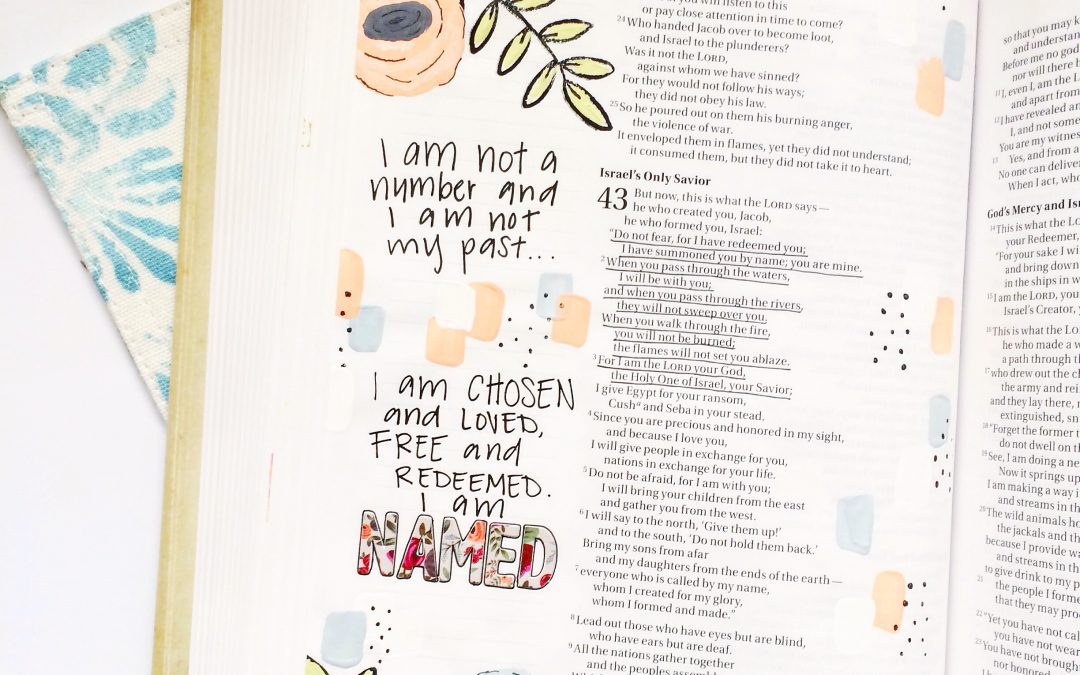 I am not a
number and
I am not
my past...
I am CHOSEN
and LOVED,
FREE and
REDEEMED.
I am
NAMED
you will listen to this
or pay close attention in time to come?
24 Who handed Jacob over to become loot,
and Israel to the plunderers?
Was it not the LORD,
against whom we have sinned?
For they would not follow his ways;
they did not obey his law.
25 So he poured out on them his burning anger,
the violence of war.
It enveloped them in flames, yet they did not understand;
it consumed them, but they did not take it to heart.
Israel's Only Savior
43 But now, this is what the LORD says—
he who created you, Jacob,
he who formed you, Israel:
"Do not fear, for I have redeemed you;
I have summoned you by name; you are mine.
2 When you pass through the waters,
I will be with you;
and when you pass through the rivers,
they will not sweep over you.
When you walk through the fire,
you will not be burned;
the flames will not set you ablaze.
3 For I am the LORD your God,
the Holy One of Israel, your Savior;
I give Egypt for your ransom,
Cush a and Seba in your stead.
4 Since you are precious and honored in my sight,
and because I love you,
I will give people in exchange for you,
nations in exchange for your life.
5 Do not be afraid, for I am with you;
I will bring your children from the east
and gather you from the west.
6 I will say to the north, 'Give them up!'
and to the south, 'Do not hold them back.'
Bring my sons from afar
and my daughters from the ends of the earth—
7 everyone who is called by my name,
whom I created for my glory,
whom I formed and made."
8 Lead out those who have eyes but are blind,
who have ears but are deaf.
9 All the nations gather together
and the peoples
so that you may
and
Before me no god
nor will there
11 I, even I, am the
and apart from
I have revealed and
I, and not some
You are my
13 Yes, and from
No one can
When I act,
God's Mercy and
14 This is what the
your Redeemer,
"For your sake I
and bring down
in the ships in
15 I am the LORD,
Israel's Creator,
16 This is what the
he who made a
a path through
17 who drew out the
the army and
and they lay there,
extinguished,
18 "Forget the former
do not dwell on
19 See, I am doing a
Now it springs
I am making a way
and streams in
20 The wild animals
the jackals and
because I provide
and streams in
to give drink to my
21 the people I
that they may
22 "Yet you have not
you have not
23 You have not
nor